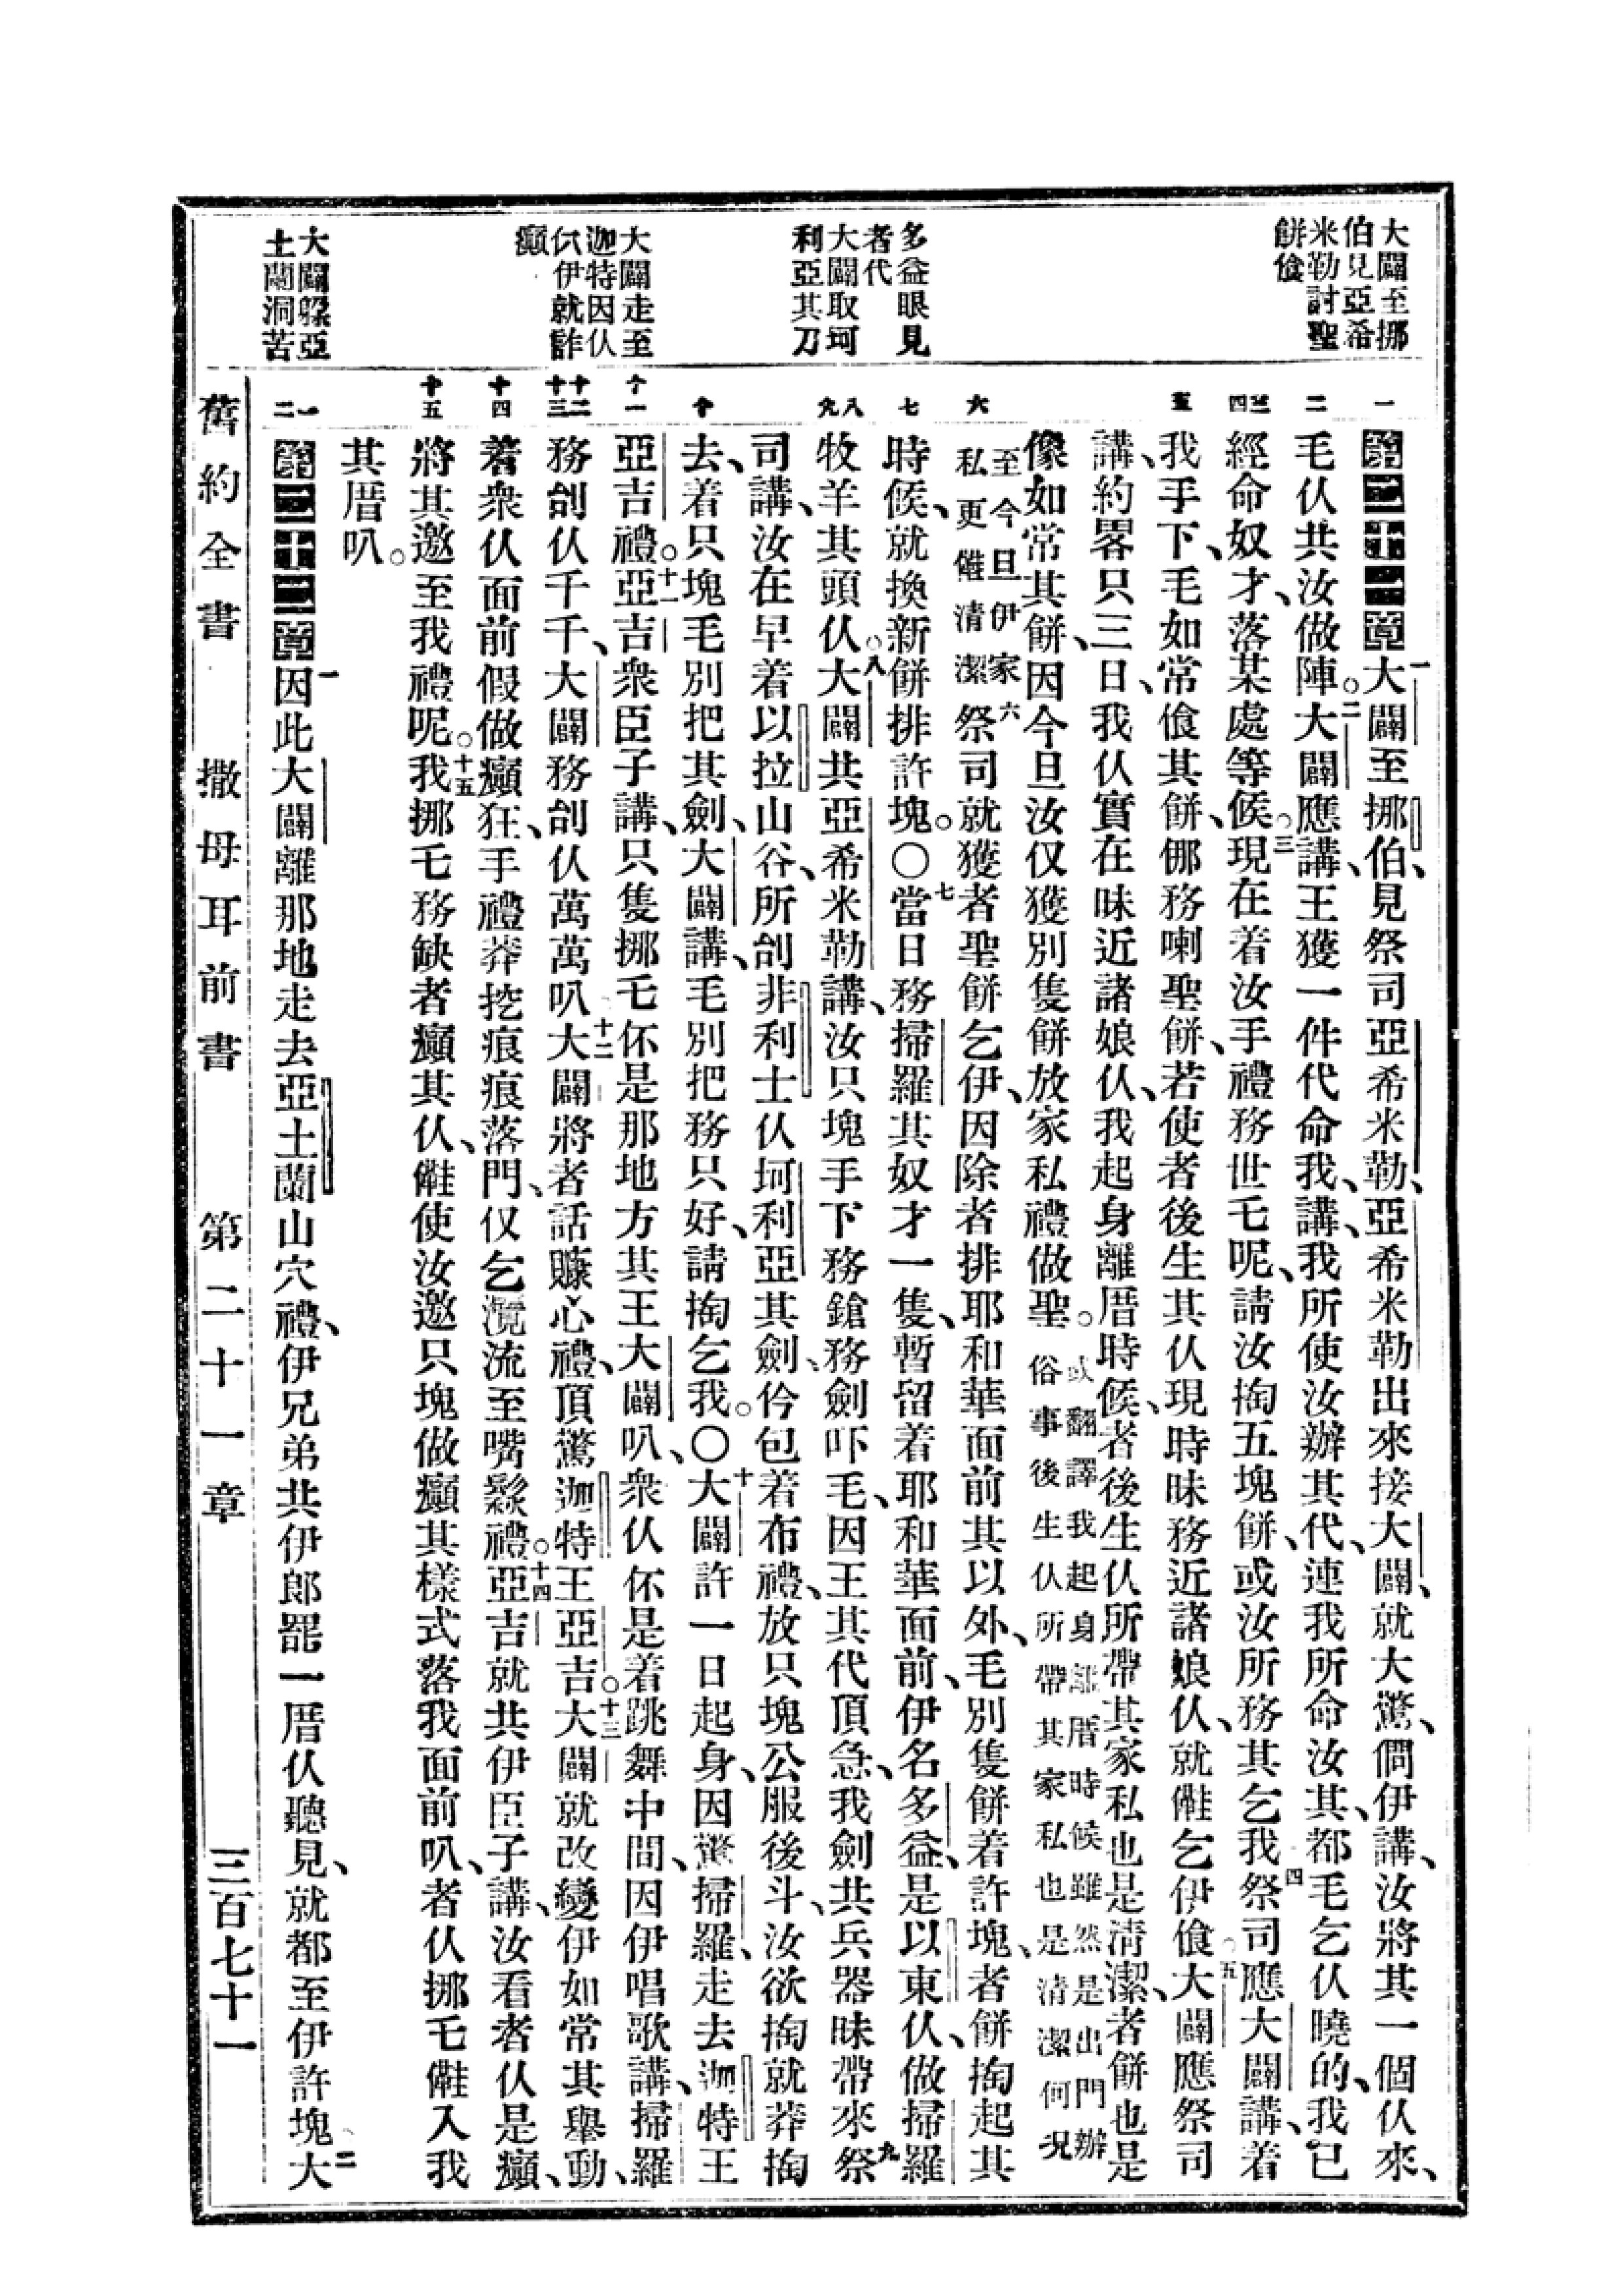 大闢至挪
伯見亞希
米勒討聖
餅傖
多益眼見
者代
大闢取坷
利亞其刀
大闢走至
迦特因仈
伩伊就詐
癲
大闢躱亞
土蘭洞苦
一
二
三
四
五
六
七
八
九
十
十一
十二
十三
十四
十五
一
二
第二十一章一大闢至挪伯、見祭司亞希米勒、亞希米勒出來接大闢、就大驚、問伊講、汝將其一個伩來、
毛伩共汝做陣。二大闢應講、王獲一件代命我、講、我所使汝辦其代、連我所命汝其、都毛乞伩曉的、我已
經命奴才、落某處等候。三現在着汝手禮務世乇呢、請汝掏五塊餅、或汝所務其乞我。四祭司應大闢講、着
我手下、毛如常傖其餅、那務喇聖餅、若使者後生其伩現時昧務近諸娘伩、就㒕乞伊傖。五大闢應祭司
講、約畧只三日、我伩實在昧近諸娘伩、我起身離厝時候、者後生伩所帶其家私也是清潔、者餅也是
像如常其餅、因今旦汝仅獲別隻餅放家私禮做聖。或翻譯我起身離厝時候雖然是出門辦
俗事後生伩所帶其家私也是清潔何况
至今旦伊家
私更㒕清潔六祭司就獲者聖餅乞伊、因除者排耶和華面前其以外、毛別隻餅着許塊、者餅掏起其
時候、就換新餅排許塊。〇七當日務掃羅其奴才一隻、暫留着耶和華面前、伊名多益、是以東伩、做掃羅
牧羊其頭伩。八大闢共亞希米勒講、汝只塊手下務鎗務劍吓毛、因王其代頂急、我劍共兵器昧帶來。九祭
司講、汝在早着以拉山谷、所刣非利士伩坷利亞其劍、伶包着布禮、放只塊公服後斗、汝欲掏就莽掏
去、着只塊毛別把其劍、大闢講、毛別把務只好、請掏乞我。〇十大闢許一日起身、因驚掃羅、走去迦特王
亞吉禮。十一亞吉衆臣子講、只隻挪乇伓是那地方其王大闢叭、衆伩伓是着跳舞中間、因伊唱歌講、掃羅
務刣伩千千、大闢務刣伩萬萬叭。十二大闢將者話賺心禮、頂驚迦特王亞吉。十三大闢就改變伊如常其舉動、
着衆伩面前假做癲狂、手禮莽挖痕痕落門、仅乞瀾流至嘴鬚禮。十四亞吉就共伊臣子講、汝看者伩是癲、
將其邀至我禮呢。十五我挪乇務缺者癲其伩、㒕使汝邀只塊做癲其樣式落我面前叭、者伩挪乇㒕入我
其厝叭。
第二十二章一因此大闢離那地走去亞土蘭山穴禮、伊兄弟共伊郎罷一厝伩聽見、就都至伊許塊。二大
舊約全書 撒母耳前書 第二十一章 三百七十一